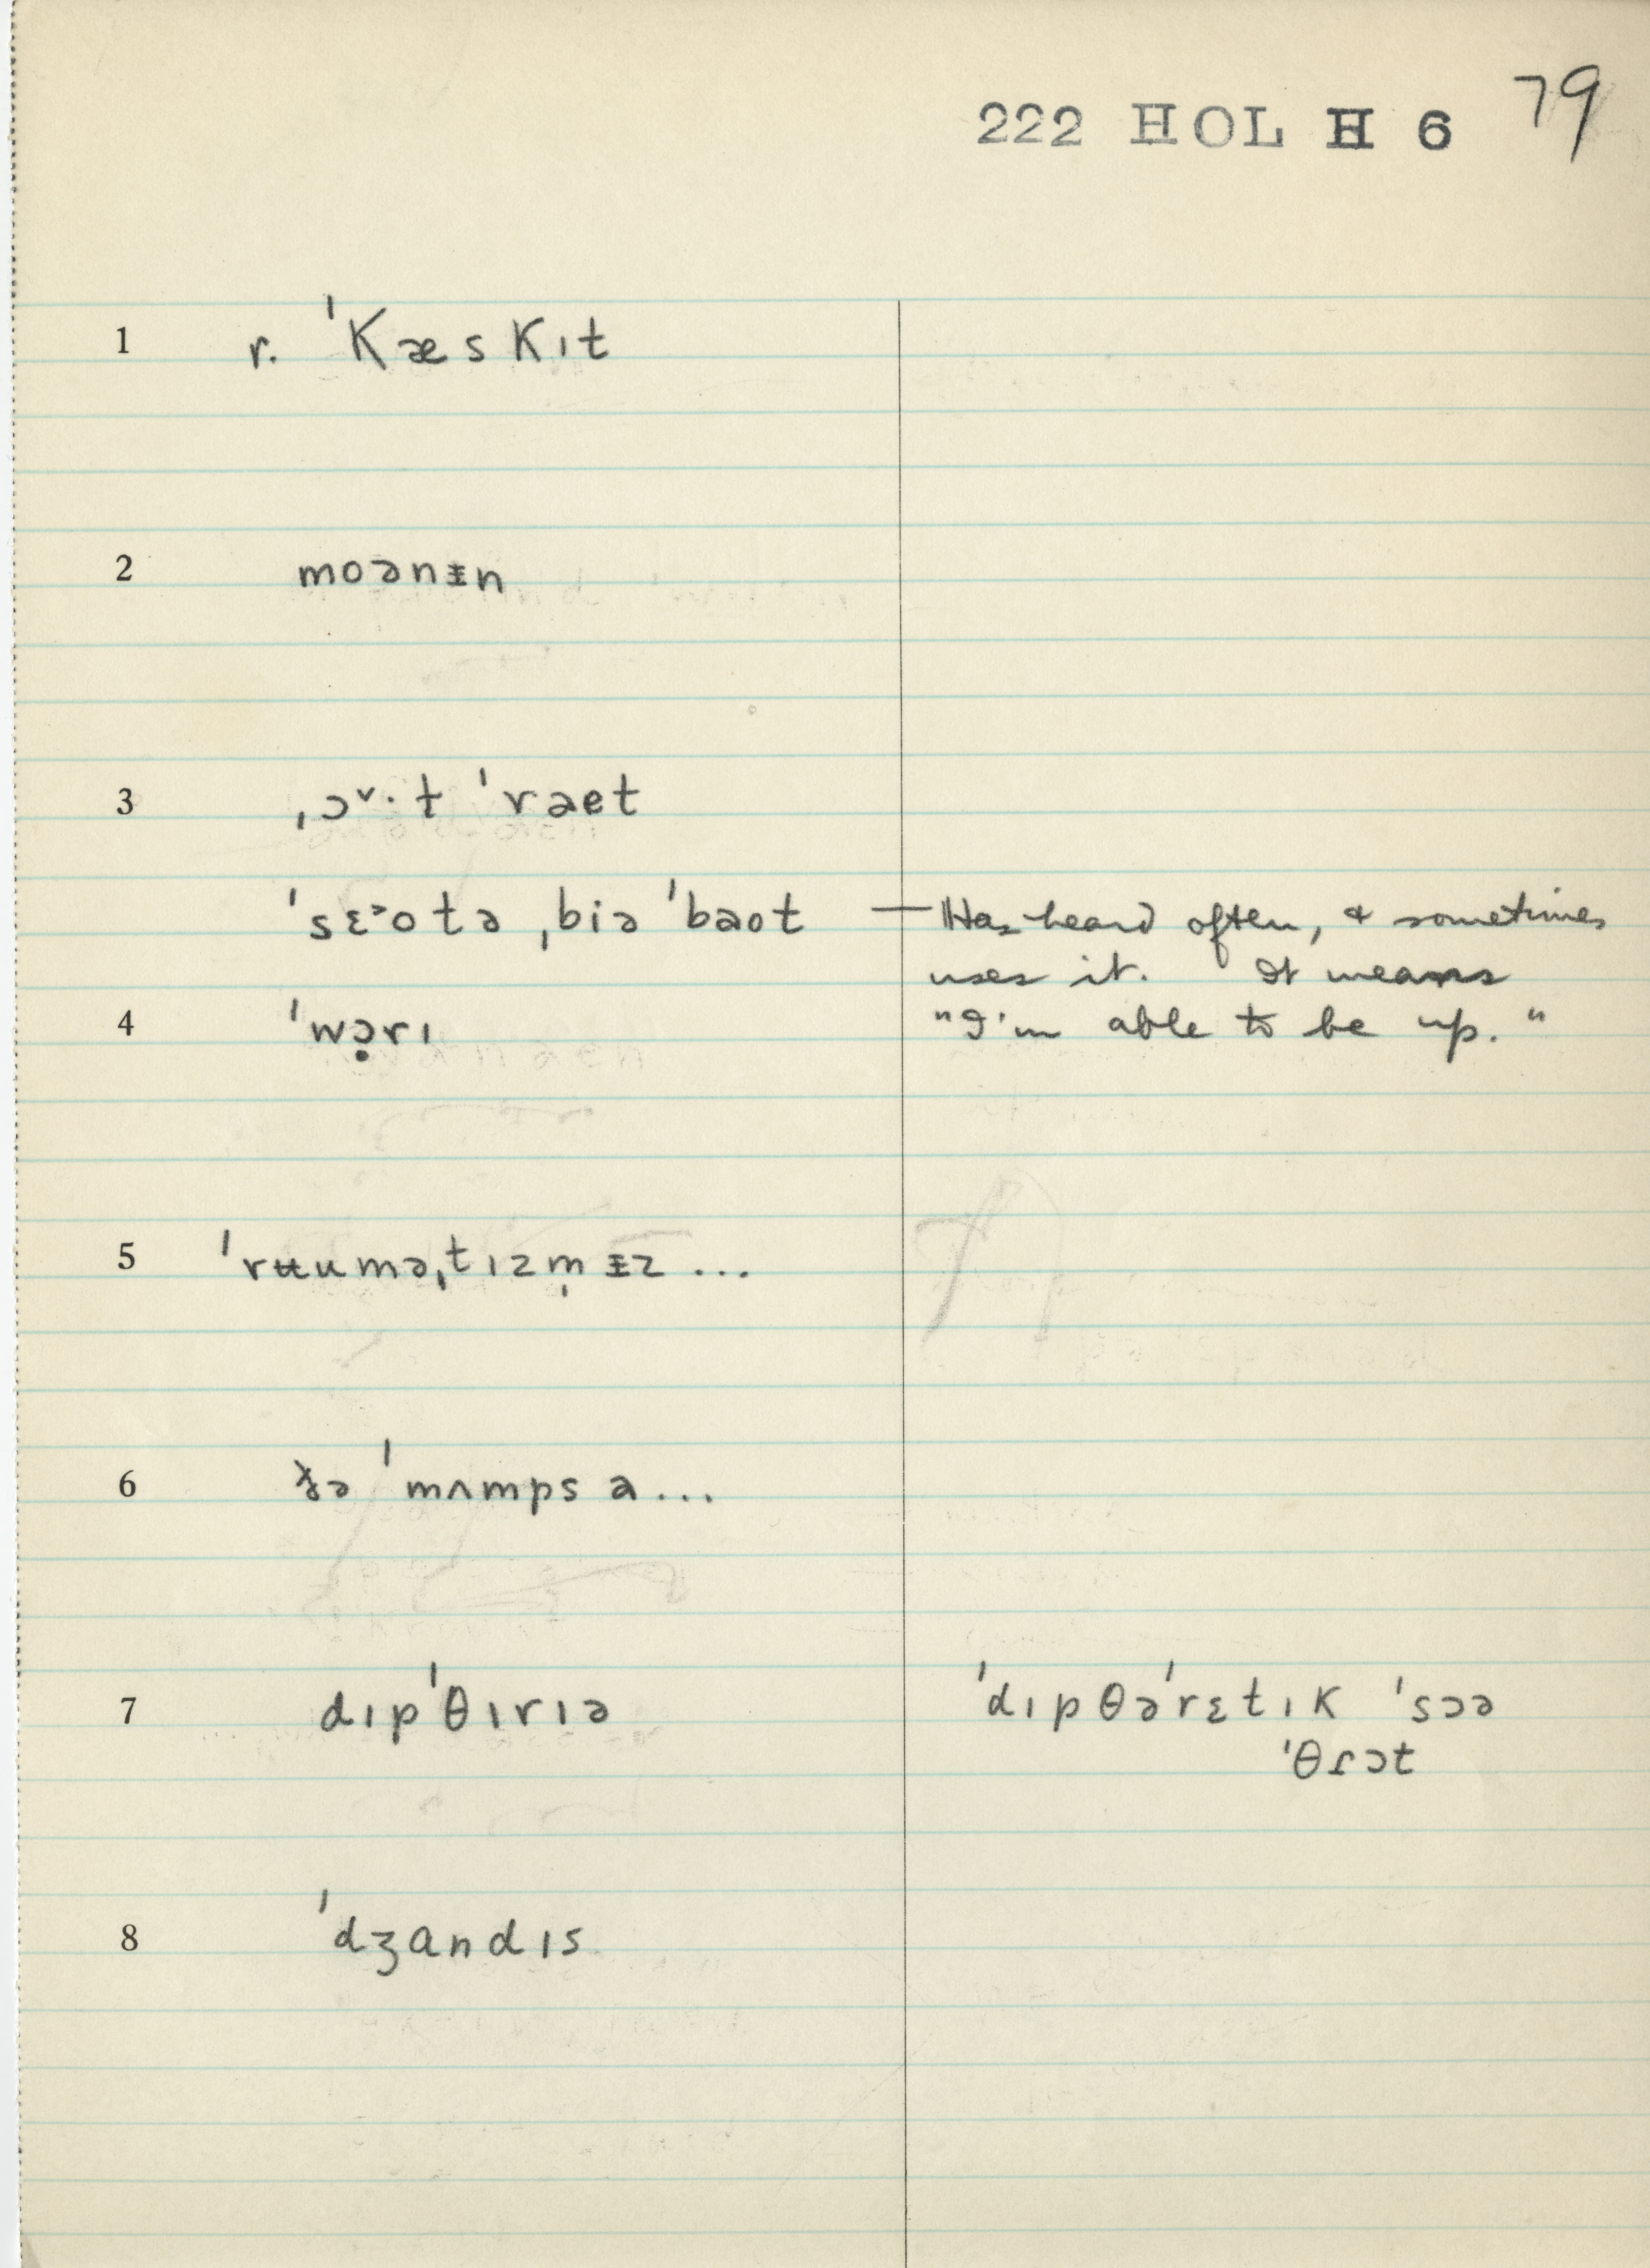 222 HOL H 6 79
1 r. ˈkæskɪt
2 moənᵻn
3 ˌɔ˅·t ˈrəet
ˈsɛ˃otə ˌbiə ˈbəot — Has heard often, & sometimes
uses it. It means
4 ˈwɔ̣rɪ "I'm able to be up."
5 ˈrʉuməˌtɪzm̩ᵻz ...
6 ðə ˈmʌmps ə...
7 dɪpˈθɪrɪə ˈdɪpθəˈrɛtɪk ˈsɔə
ˈθɾɔt
8 ˈdʒandɪs